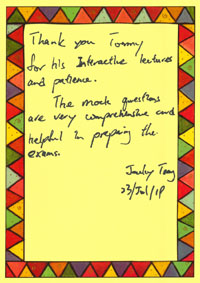 Thank you Tommy
for his Interactive lectures
and patience.
The mock questions
are very comprehensive and
helpful in preparing the
exams.
23/Jul/18